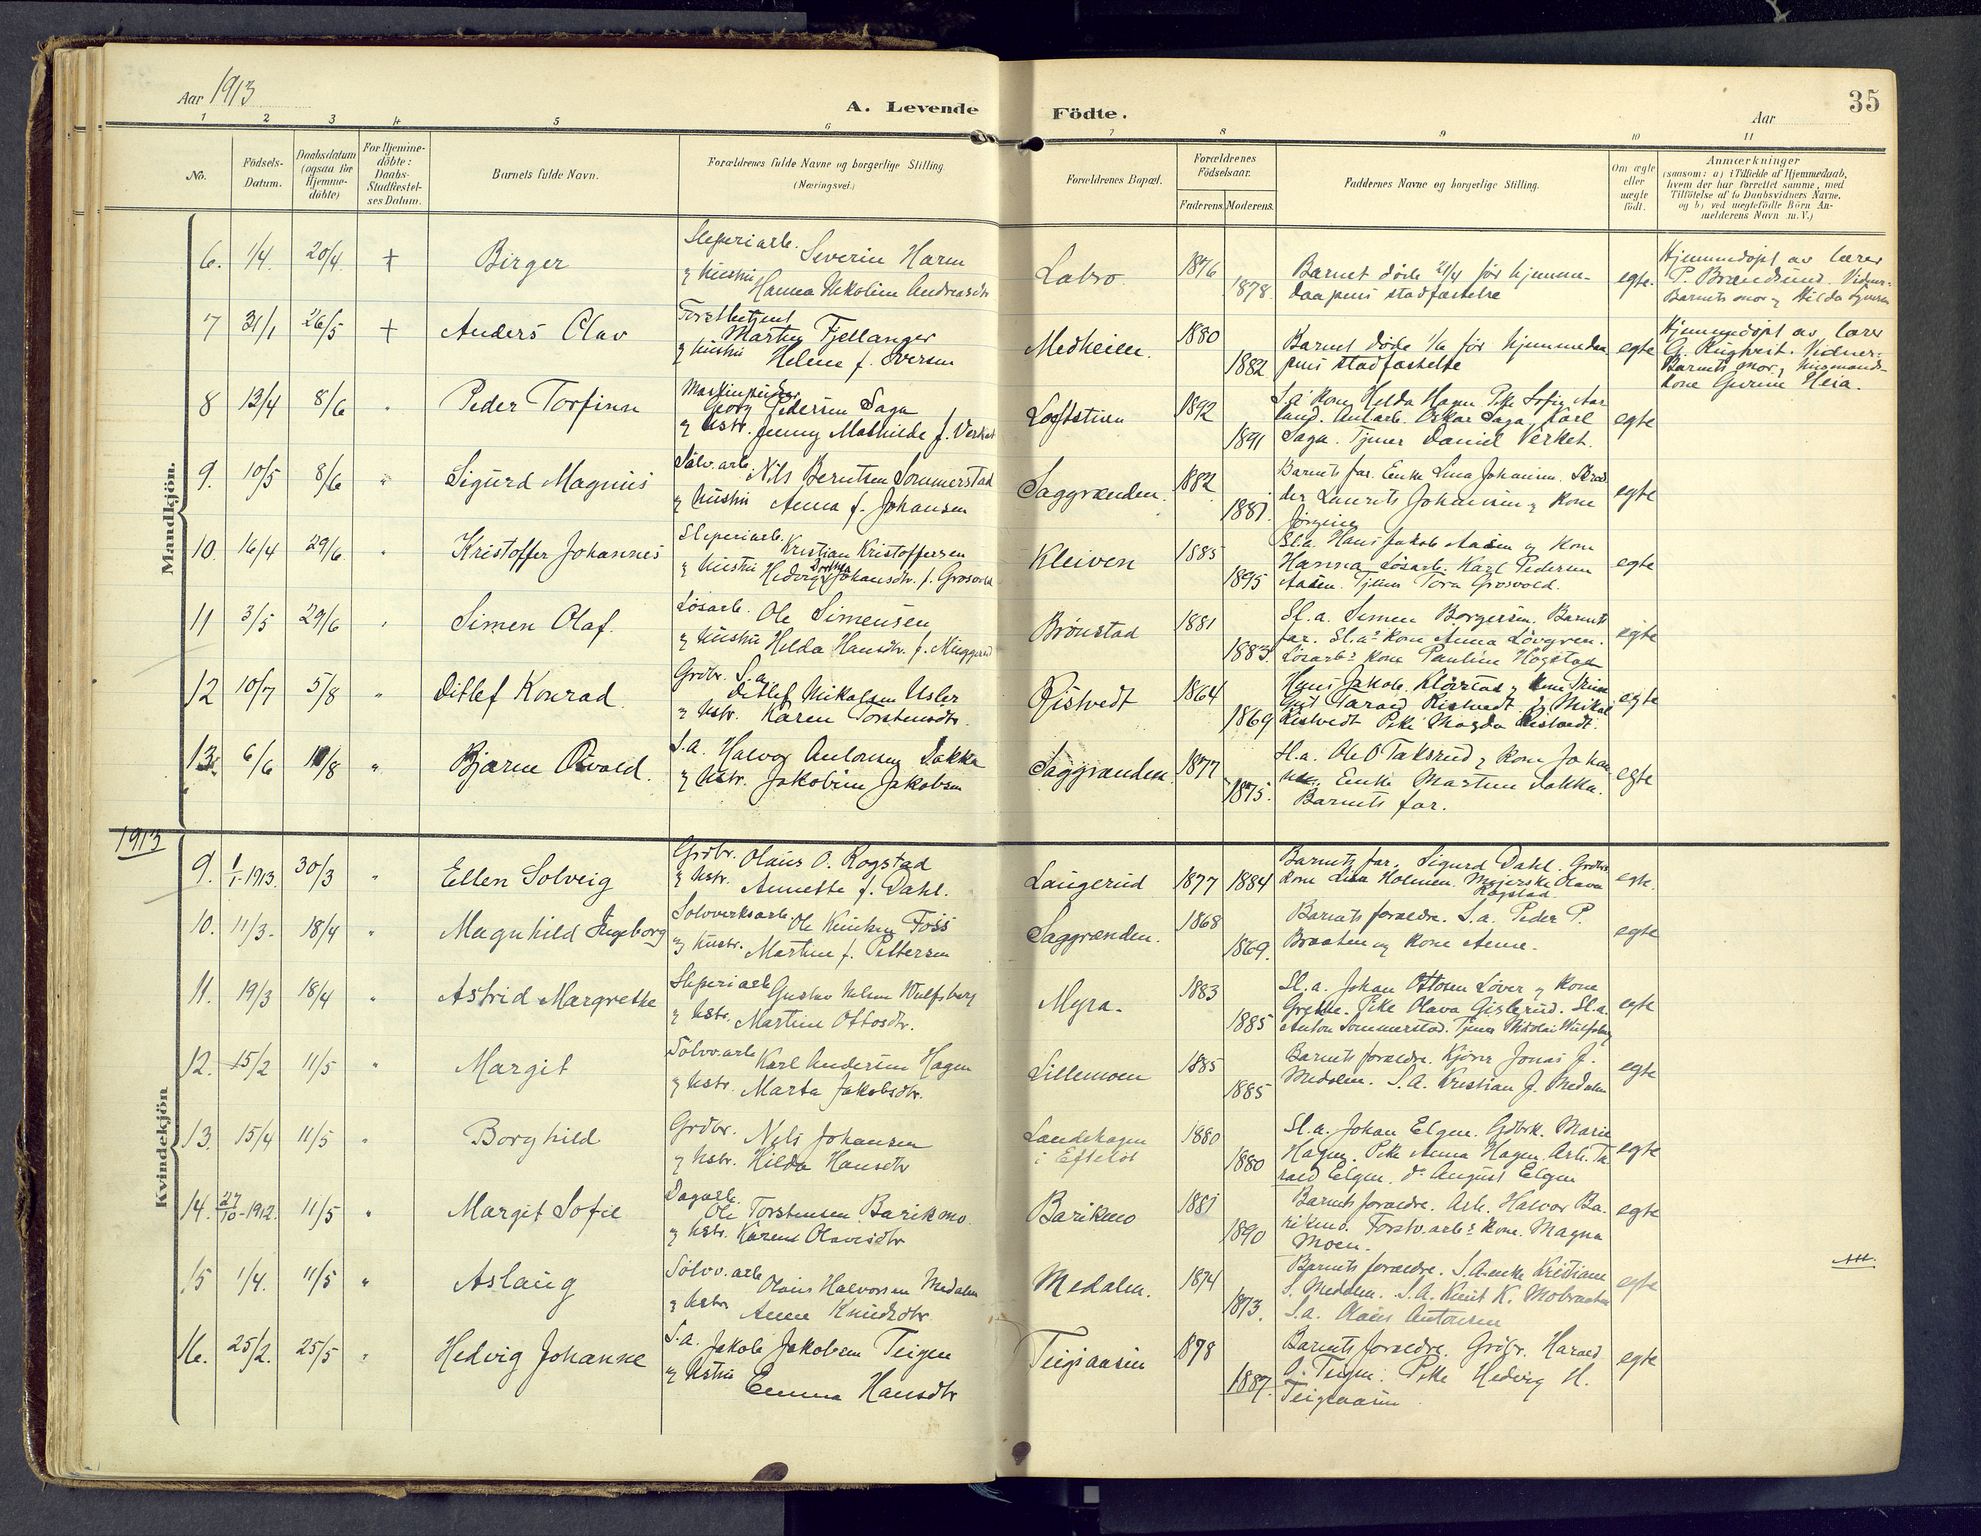 Aar 1913
A. Levende Födte.
Aar
35
1 2 3 4 5 6 7 8 9 10 11
No.
Födsels-
Datum.
Daabsdatum
(ogsaa for
Hjemme-
döbte)
For Hjemme-
döbte:
Daabs-
Stadfæstel-
ses Datum.
Barnets fulde Navn.
Forældrenes fulde Navne og borgerlige Stilling
(Næringsvei.)
Forældrenes Bopæl.
Forældrenes
Födselsaar.
Faderens. Moderens.
Faddernes Navne og borgerlige Stilling.
Om ægte
eller
uægte
födt.
Anmærkninger
(saasom: a) i Tilfælde af Hjemmedaab,
hvem der har forrettet samme, med
Tilföielse af to Daabsvidners Navne,
og b) ved uægtefödte Börn An-
melderens Navn m. V.)
Mandkjön.
6. 1/4. 20/4. + Birger
Sliperiarb. Severin Haren
og hustru Hanna Nikoline Andreasdtr
Labro. 1876 1878.
Barnet døde 21/4 før hjemme-
daapens stadfæstelse
egte.
Hjemmedøpt av lærer
P. Brændsund. Vidner:
Barnets mor og Hilda
7 31/1 26/5 + Anders Olav
Forstbetjent
Martin Fjellanger
og hustru Helene f. Iversen
Medheien. 1880 1882
Barnet døde 1/6 før hjemmedaa
pens stadfæstelse
egte
Hjemmedøpt av lærer
G. Vidner:
Barnets mor, husmands-
kone Gurine Heia.
8 13/4 8/6 " Peder Torfinn
Georg Pedersen Saga
og hstr. Jenny Mathilde f. Verket
Loftstuen 1892 1891
S.a. kone Helda Hagen Pike Sofie Aar
lund. Anl.arb. Oskar Saga, Karl
Saga. Tjener Daniel Verket.
egte
9. 10/5 8/6 " Sigurd Magnus
Sølv.arb. Nils Berntsen Sommerstad
og hustru Anna f. Johansen
Saggrænden. 1882 1881.
Barnets far. Enke Lina Johansen. Skræd
der Laurits Johansen og kone
Jørgine
egte
10. 16/4 29/6. " Kristoffer Johannes
Sliperiarb. Kristian Kristoffersen
og hustru Hedvig Dorthea Johansdtr. f. Grosvold
Kleiven 1885 1895
Sl.a. Hans Jakob Aasen og kone
Hanna Løsarb. Karl Pedersen
Aasen. Tjener Tora Grosvold.
egte
11 3/5 29/6 " Simen Olaf.
Løsarb. Ole Simensen
og hustru Helda Hansdtr. f.
Brønstad 1881 1883.
Sl.a. Simen Borgersen. Barnets
far. Sl.a.s kone Anna Løvgren.
Løsarb.s kone Pauline Hogstad
egte
12 10/7 5/8 " Ditlef Konrad.
Grdbr. S.a.
Ditlef Nikolsen Usler
og hstr. Karen Torstensdtr.
Ristvedt 1864 1869
Hans Jakob. og kone
Gut Tarald Ristvedt. do Mikal
Ristvedt Pike Magda Ristvedt.
egte
13. 6/6 11/8 " Bjarne Osvald.
S.a. Halvor Antonsen Dakka
og hstr. Jakobine Jakobsen
Saggrænden. 1877 1875.
Sl.a. Ole O Taksrud og kone Johan
ne, Enke Martine Dakka.
Barnets far.
egte
1913
Kvindekjön
9. 1/1-1913. 30/3 " Ellen Solveig
Grdbr. Olaus O. Rogstad
og hstr. Annette f. Dahl.
Laugerud 1877 1884
Barnets far. Sigurd Dahl. Grdbr.
kone Lina Holmen. Meierske Olava
Rogstad.
egte.
10. 11/3. 18/4 " Magnhild Ingeborg
Sølvverksarb. Ole Knutsen Foss
og hustr. Martine f. Pettersen
Saggrænden. 1868 1869.
Barnets forældre. S.a. Peder P.
Braaten og kone Anne.
egte
11. 19/3 18/4 " Astrid Margrethe
Sliperiarb Gustav Nilsen Wulfsberg
og hstr. Martine Ottosdtr.
Myra. 1883 1885
Sl.a. Johan Ottosen Løver og kone
Grethe. Pike Olava Gislerud. Sl.a.
Anton Sommerstad. Tjener Nikolai Wulfsberg
egte
12. 15/2 11/5 " Margit
Sølvv.arb Karl Andersen Hagen
og hstr. Marta Jakobsdtr.
Lillemoen 1885 1885
Barnets forældre. Kjører Jonas J.
Medalen. S.A. Kristian J. Medalen
egte
13. 15/4 11/5 " Borghild
Grdbr. Nels Johansen
og hstr. Hilda Hansdtr
Landehagen
i Efteløt 1880 1880
Sl.a. Johan Elgen. Gdbrk. Marie
Hagen. Pike Anna Hagen. Arb. Ta
rald Elgen. do August Elgen
egte
14. 27/10-1912. 11/5 " Margit Sofie
Dagarb.
Ole Torstensen Barikmo.
og hstr. Karen Olavesdtr
Barikmo 1881 1890
Barnets forældre. Arb. Halvor Ba-
rikmo. Forstv.arb.s kone. Magna
Moen.
egte
15 1/4. 11/5 " Aslaug
Sølvv.arb Olaus Halvorsen Medalen
og hstr Anne Knudsdtr
Medalen. 1874 1873.
Barnets forældre. S.A. enke Kristiane
S. Medalen. S.A. Knut K. Mobraaten
S.a. Olaus Antonsen
egte
16. 25/2. 25/5 " Hedvig Johanne
S.a. Jakob Jakobsen Teigen
og hstru Emma Hansdtr
Teigsaasen 1878 1887.
Barnets forældre. Grdbr. Harald
A. Teigen. Pike Hedvig H.
Teigsaasen
egte